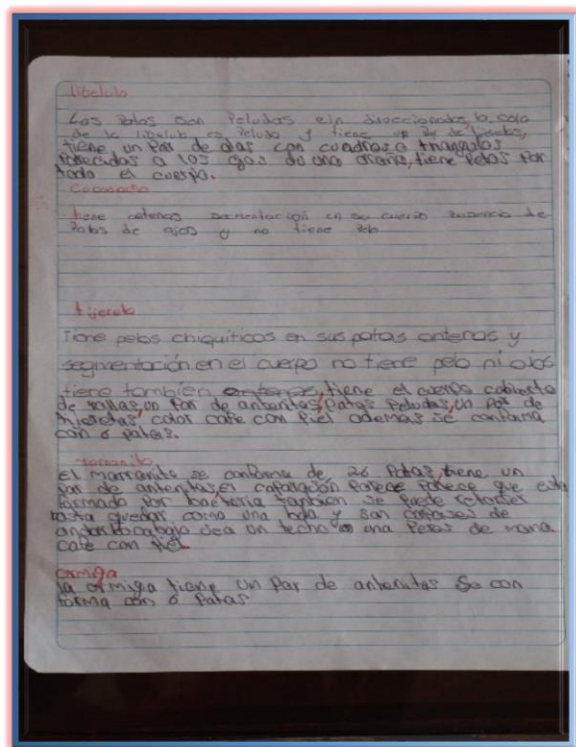 libelula
Las Patas son Peludas ein direccionadas, la cola
de la libelula es Peluda y tiene un Par de
tiene, un Par de alas con cuadros o triangulos
Parecidos a los ojos de una araña, tiene Pelos Por
todo el cuerpo.
Cucaracha
tiene antenas segmentación en su cuerpo ausencia de
Patas de ojos y no tiene
tijereta
Tiene pelos chiquiticos en sus patas antenas y
segmentación en el cuerpo no tiene pelo ni ojos
tiene tambien tiene el cuerpo cubierto
de rallas, un Par de antenitas, Patas Peludas, un Par de
tijeretas, color cafe con Piel ademas se conforma
con 6 patas.
marranito
El marranito se conforma de 26 Patas, tiene un
Par de antenitas, el caparazón Parece Parece que esta
formado Por bacteria tambien se Puede
asta quedar como una bola y son capases de
andar bocabajo sea un techo o una Pered de
cafe con Piel.
ormiga
la ormiga tiene un Par de antenitas Se con
forma con 6 Patas